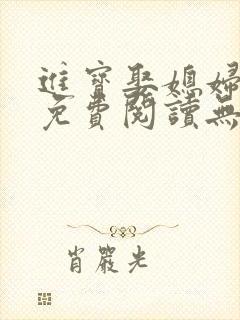 進寶娶媳婦
免費閱讀無
肖嚴光